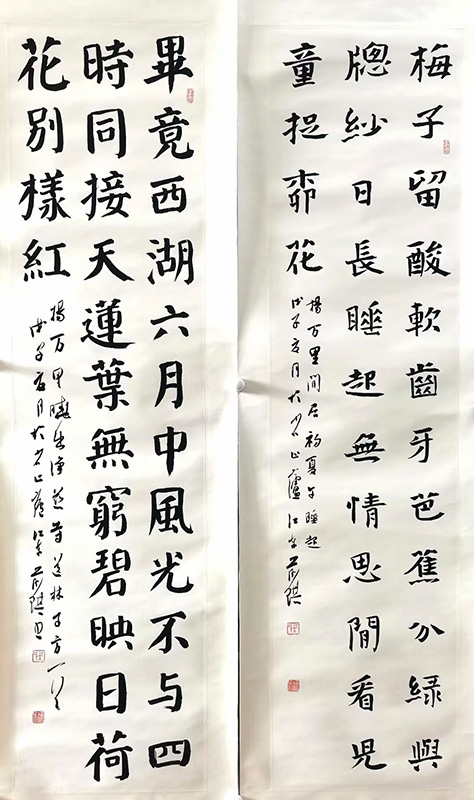 梅子留酸軟齒牙芭蕉分綠與
牕紗日長睡起無情思閒看児
童捉桞花
楊万里閒居初夏午睡起
戊子夏月於
畢竟西湖六月中風光不与四
時同接天蓮葉無窮碧映日荷
花別樣紅
楊万里曉出淨慈寺送林子方一首
戊子夏月於